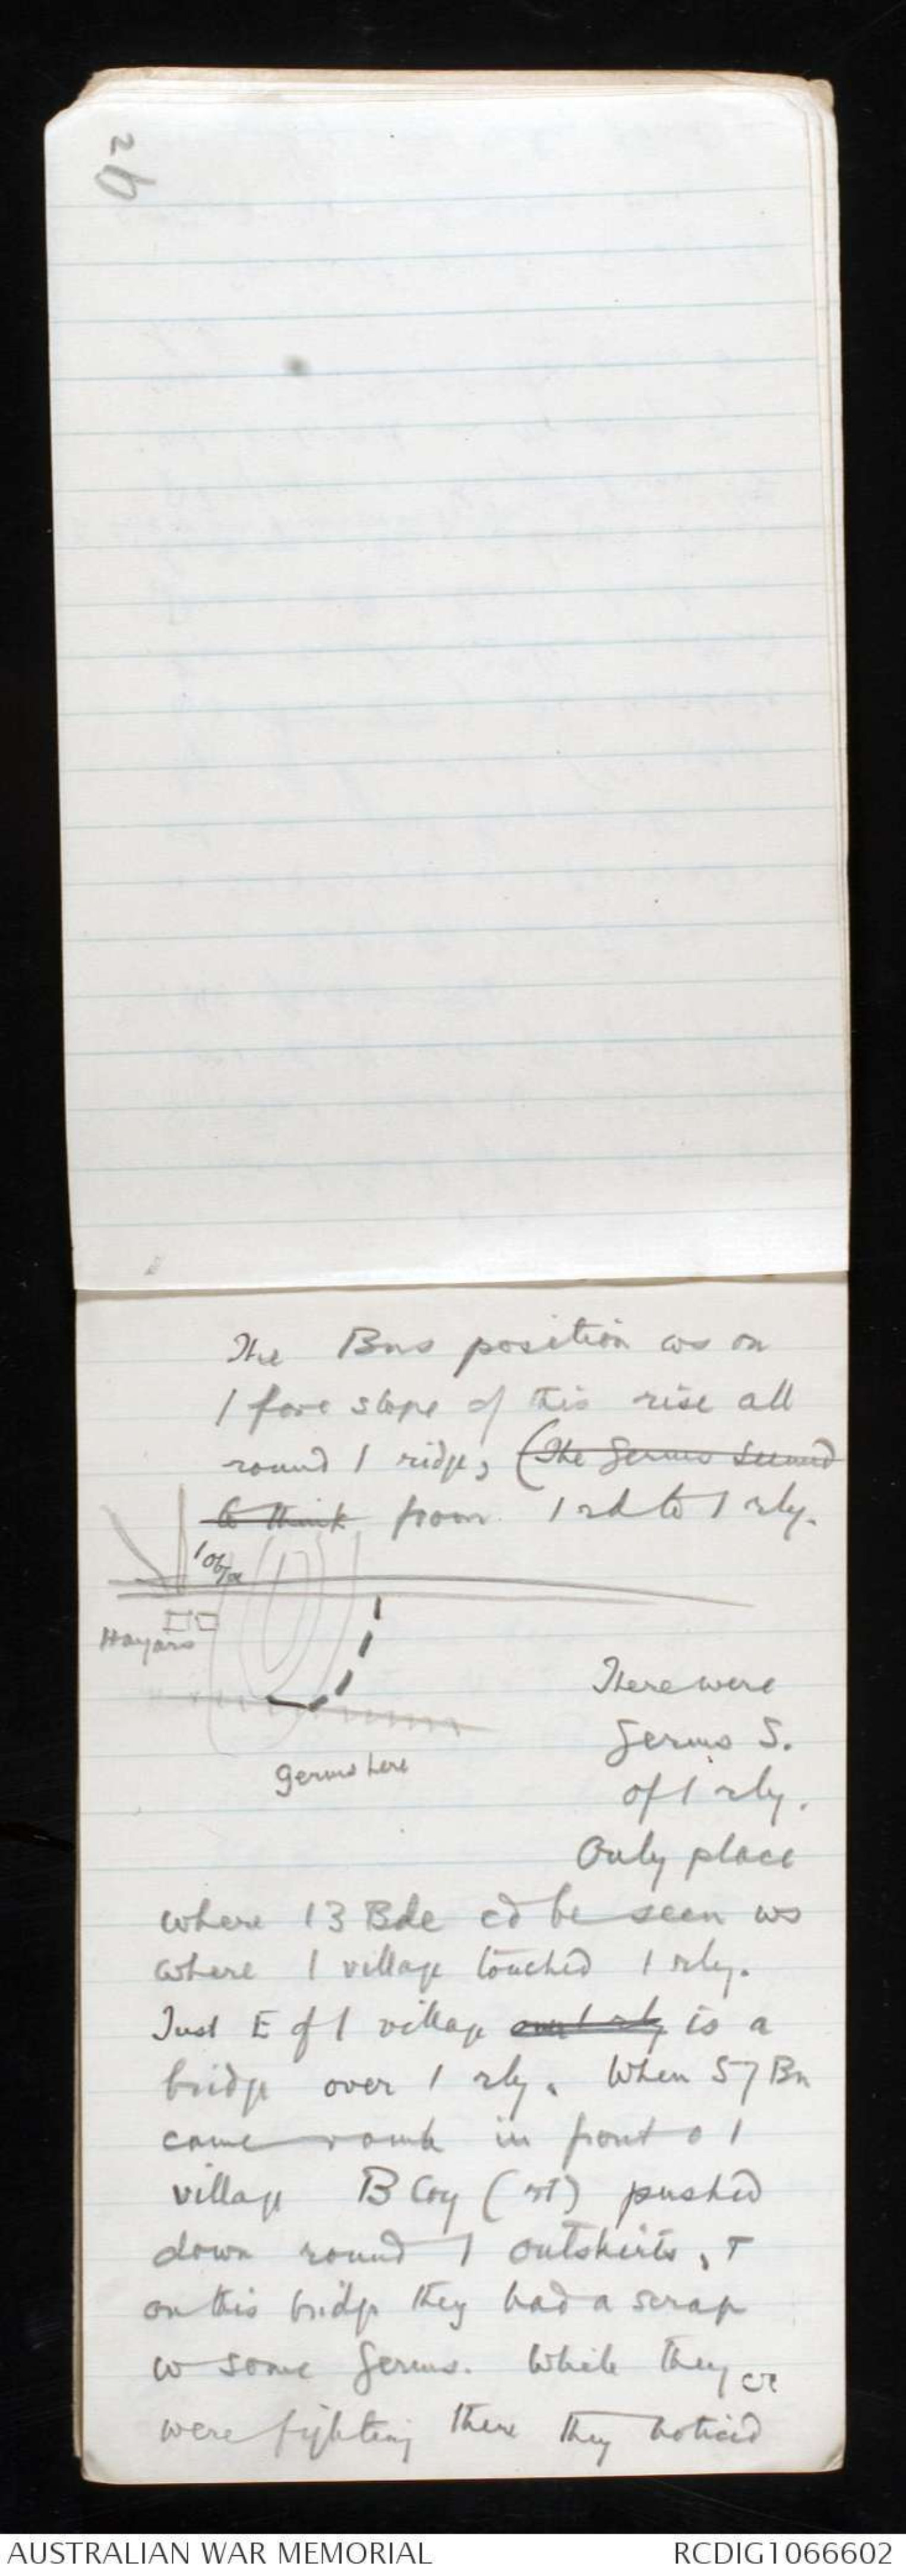 26
The Bns position ws on
/ fore slope of this rise all
round / ridge, (The Germs seemed
to think from / rd to / rly.
Hangars
There were
Germs S.
of / rly.
Germs here
Only place
where 13 Bde cd be seen ws
where / village touched / rly.
Just E of / village is a
bridge over / rly. When 57 Bn
came in front o /
village B Coy (rt) pushed
down round / outskirts, &
on this bridge they had a scrap
w some Germs. While they
were fighting there they noticed
AUSTRALIAN WAR MEMORIAL
RCDIG1066602